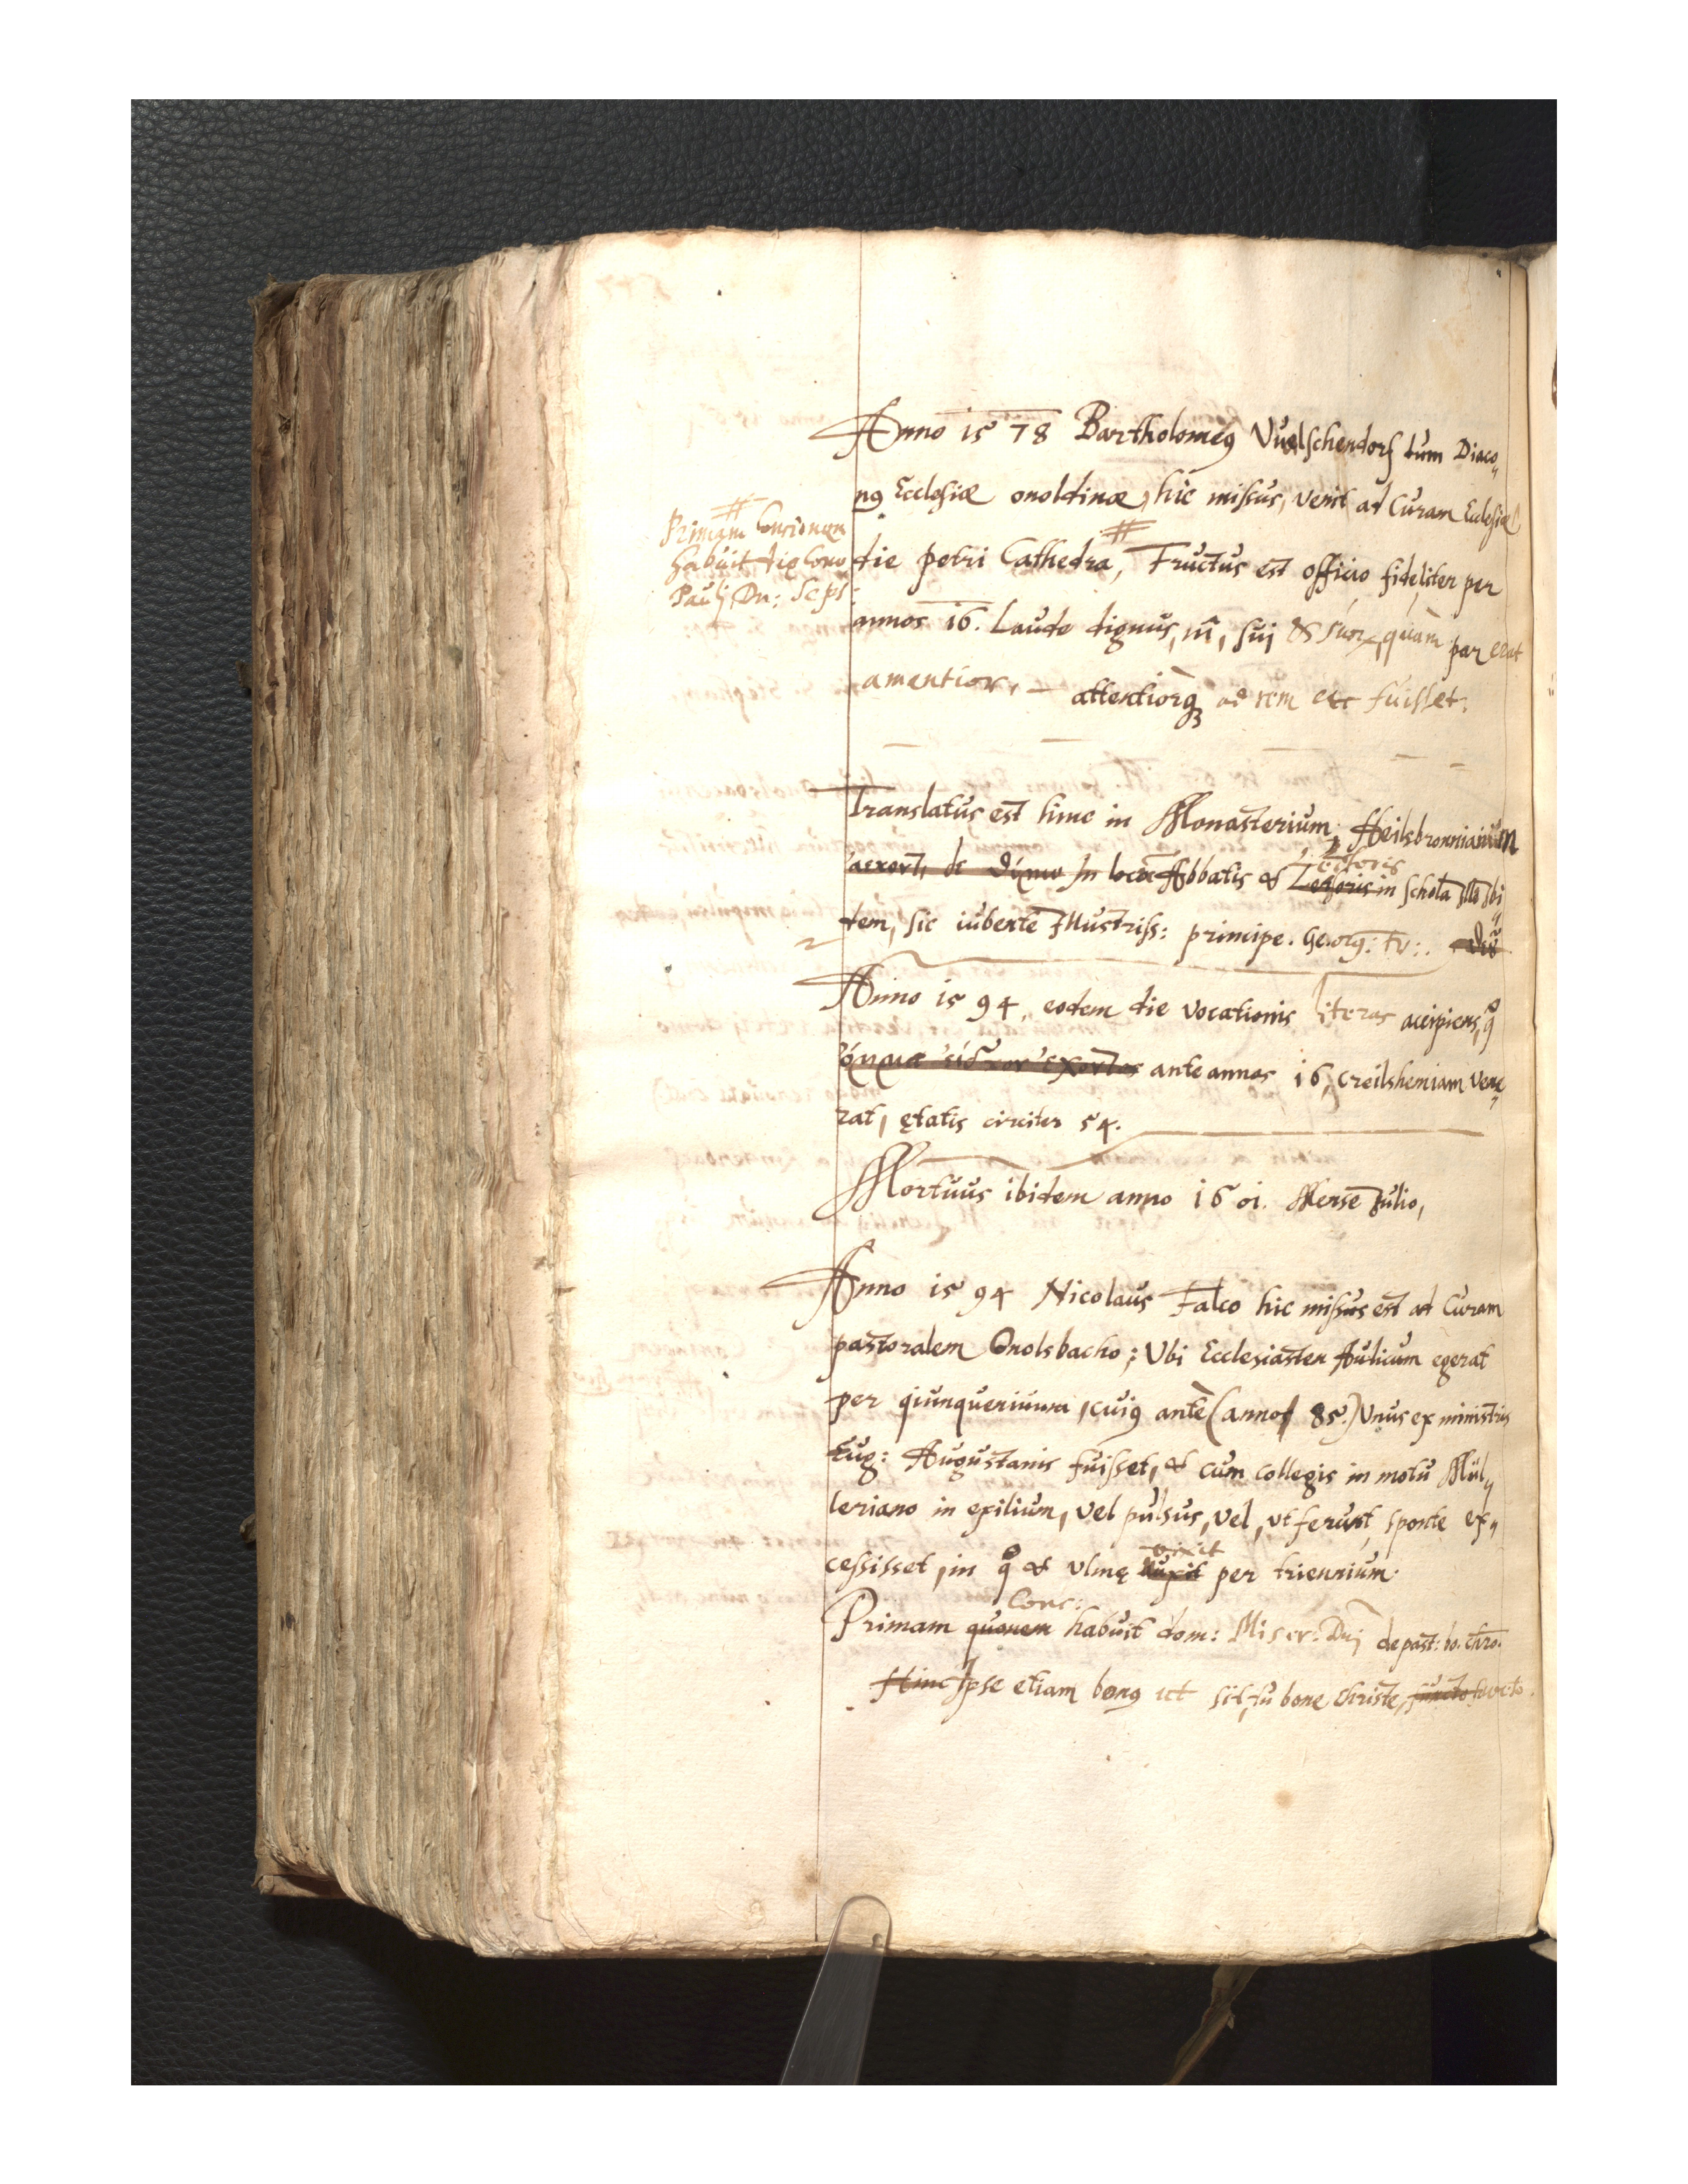 Anno 1578 Bartholomeꝰ Vuelschendorf tum Diaco„
nꝰ Ecclesiæ onoldinæ, hic missus, venit ad Curam Ecclesiæ
die petri Cathedra, # Fructus est officio fideliter per
# Primam Concionem
habuit die Conv.
Pauli, Dn: Seps:
annos 16. Laude dignus, ni, sui & suorum, quàm par erat
amantior, – attentiorq; ad rem etc fuisset.
Translatus est hinc in Monasterium, Heilsbronnianum
in locum Abbatis & Lectoris in Schola illa ibi„
dem, sic iubente Illustriss: principe. Georg: Fr:.
Anno 1594, eodem die vocationis literas accipiens, q̊
ante annos 16, Creilshemiam vene„
rat, ętatis circiter 54.
Mortuus ibidem anno 1601. Mense Julio,
Anno 1594 Nicolaus Falco hic missus est ad Curam
pastoralem Onolsbacho; Ubi Ecclesiasten Aulicum egerat
per quinquennium, cuiꝰ antè (anno 85.) Unus ex ministris
Eug: Augustanis fuisset, & cum collegis in motu Mül„
leriano in exilium, vel pulsus, vel, ut ferunt, sponte ex„
cessisset, in q̊ & Ulmę vixit per triennium.
Primam Conc: habuit dom: Miser: Dnj de past: bo. Chro.
Hinc Ipse etiam bonꝰ ut sit, tu bone Christe,